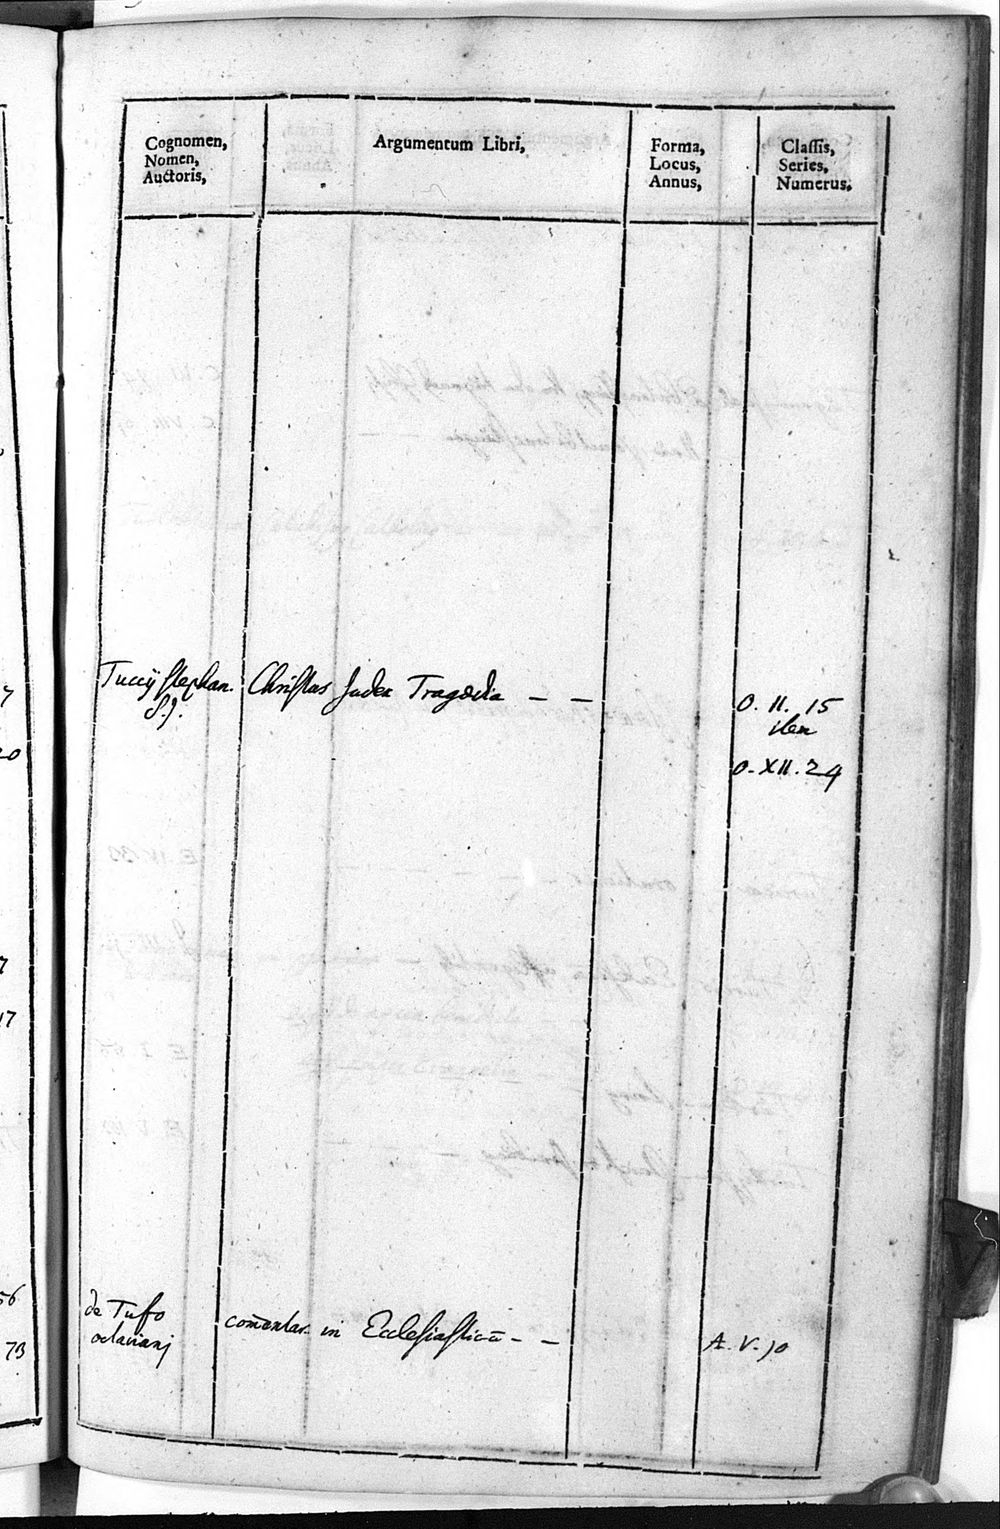 Cognomen,
Nomen,
Auctoris,
Argumentum Libri,
Forma,
Locus,
Annus,
Classis,
Series,
Numerus.
Tuccij Stephan. Christus Judex Tragœdia – –
S.J.
O. II. 15
item
O. XII. 24
de Tufo
octavianj
com̄entar. in Ecclesiasticū – –
A. V. 10
7
20
7
17
56
73
V